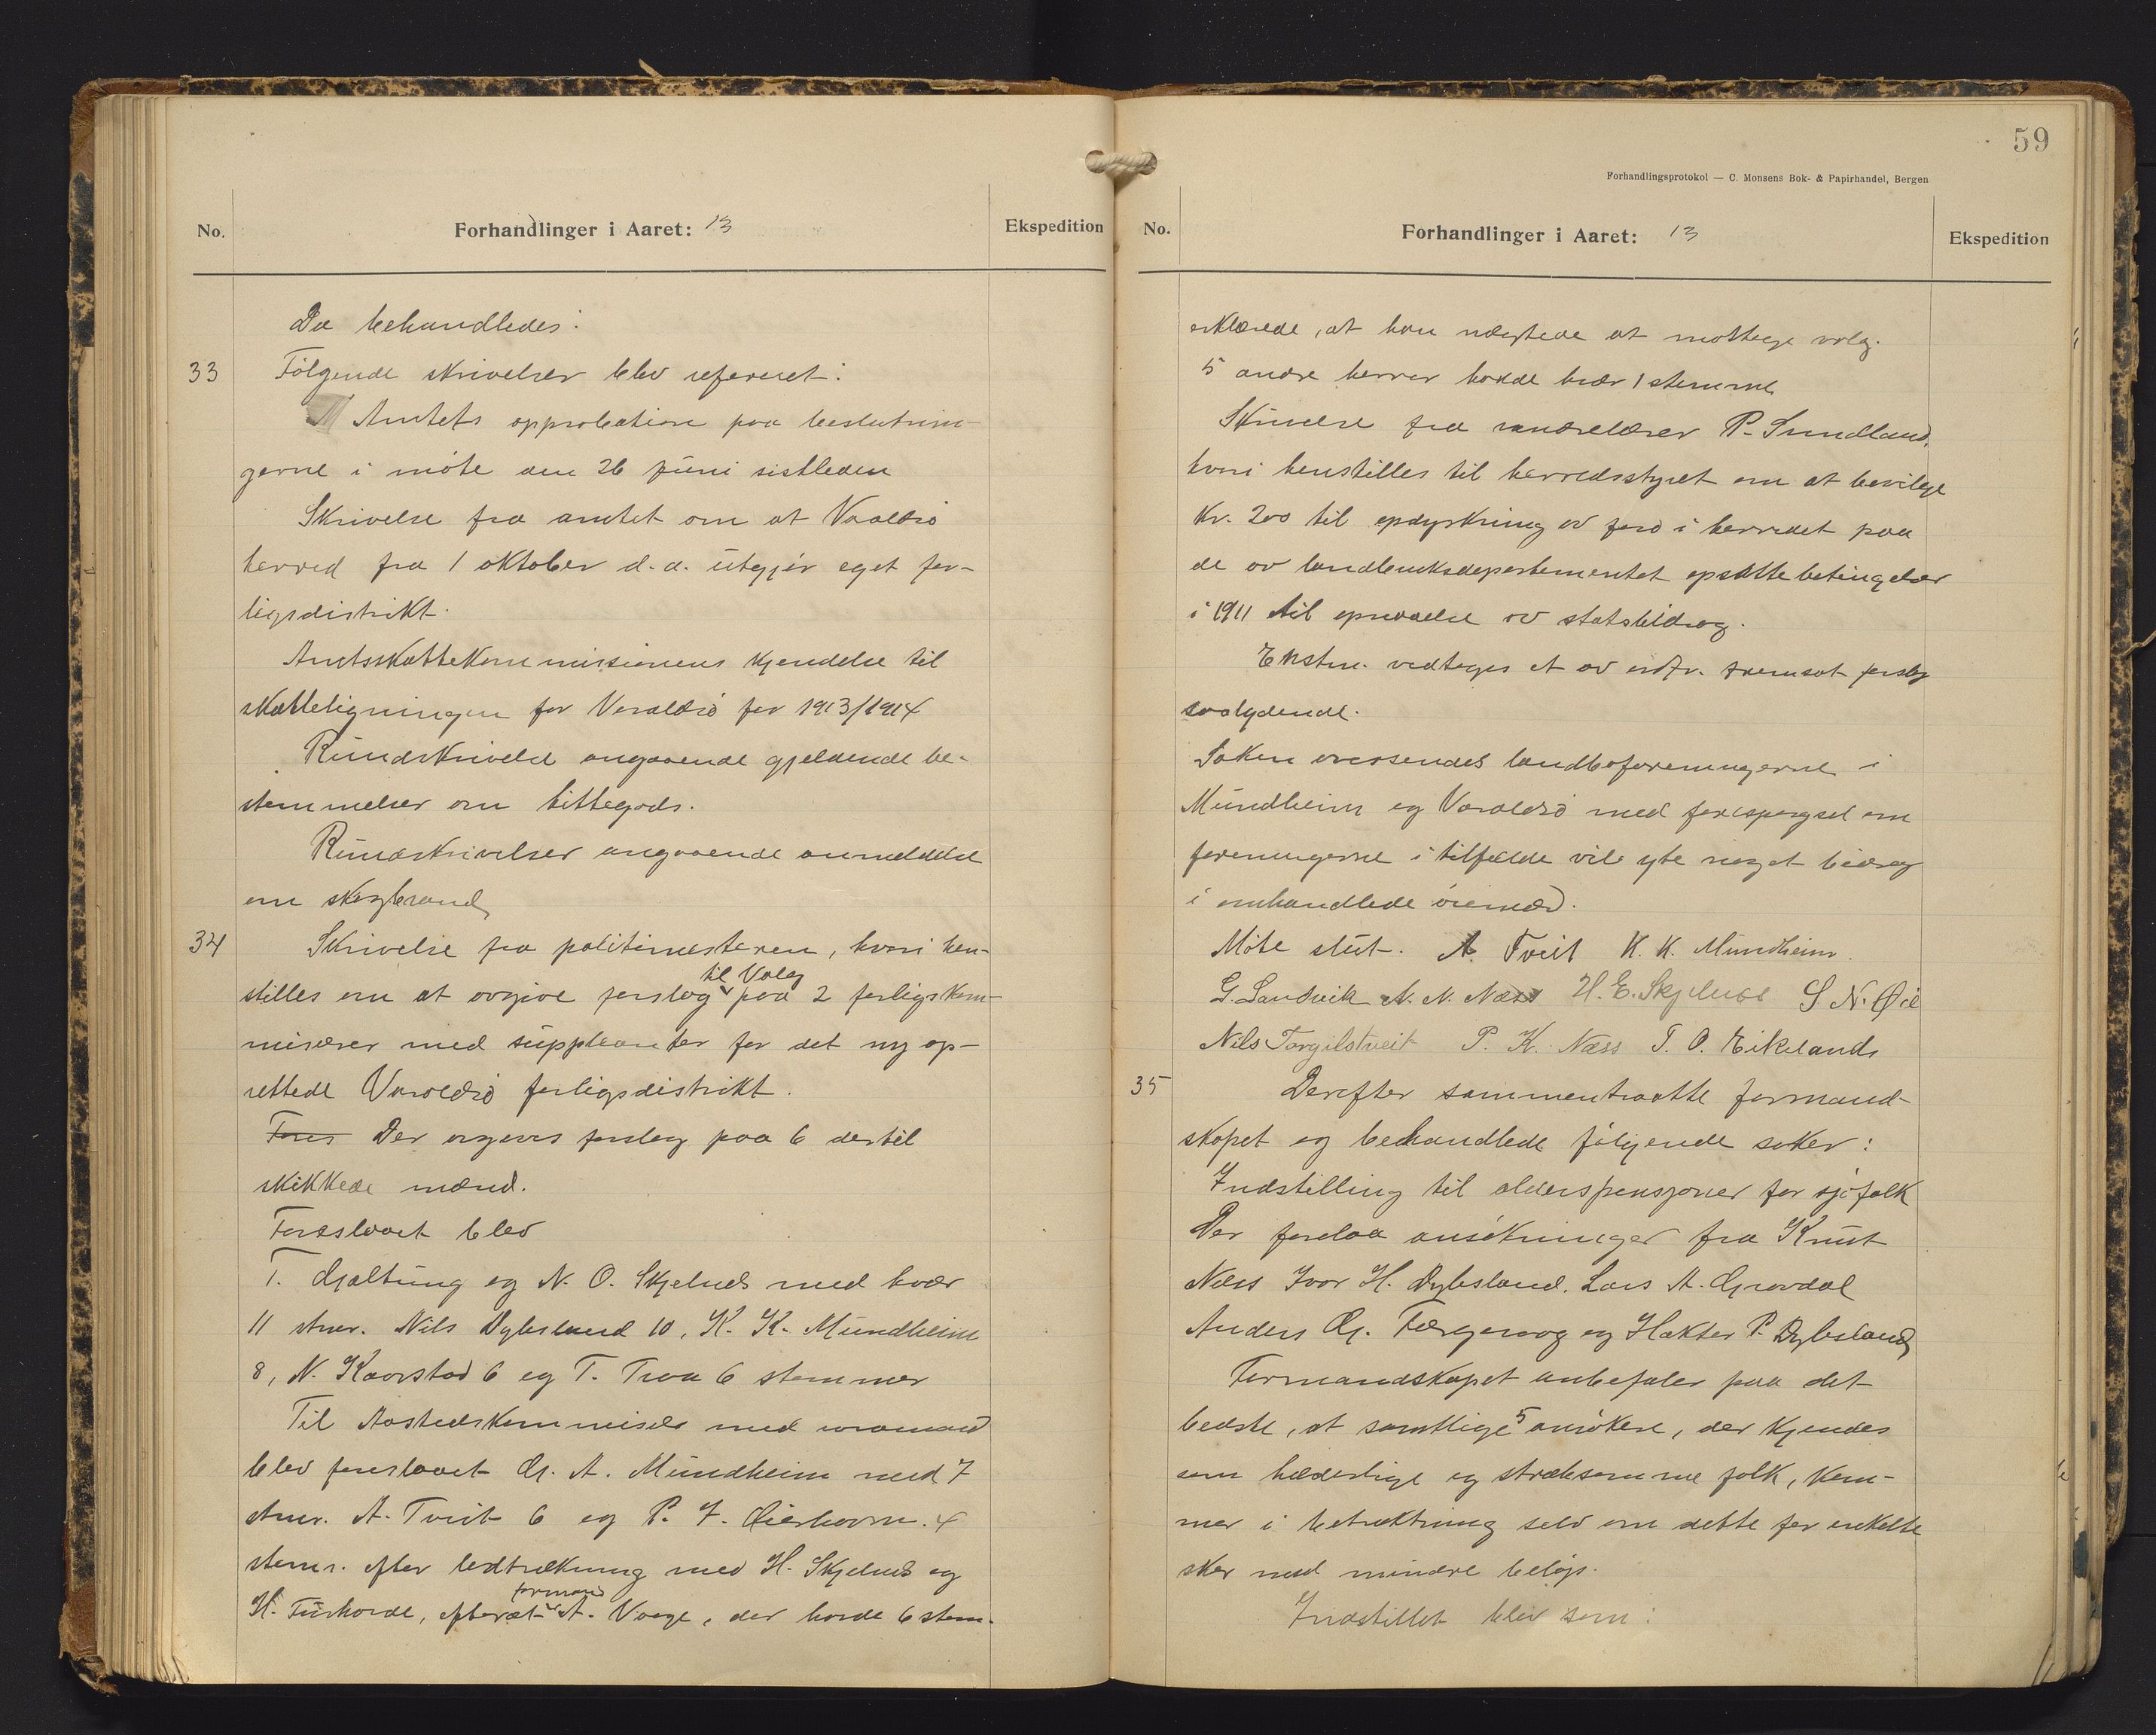 No.
Forhandlinger i Aaret: 13
Ekspedition
Da behandledes:
33 Følgende skrivelser blev referert:
Amtets approbation paa beslutnin-
gerne i møte den 26 juni sistleden
Skrivelse fra amtet om at Varaldsø
herred fra 1 oktober d.a. utgjør eget for-
ligsdistrikt.
Amtsskattekommissionens kjendelse til
skatteligningen for Varaldsø for 1913/1914
Rundskrivelse angaaende gjeldende be-
stemmelser om hittegods.
Rundskrivelser angaaende anmeldelse
om skogbrand
34 Skrivelse fra politimesteren, hvori hen-
stilles om at avgive forslag til Valg paa 2 forligskom-
misærer med suppleanter for det ny op-
rettede Varaldsø forligsdistrikt.
Fores Der avgaves forslag paa 6 dertil
skikkede mænd.
Foreslaaet blev
T. Gjaltung og N. O. Skjelnes med hvær
11 stmr. Nils Dybsland 10, K. K. Mundheim
8, N. Kaarstad 6 og T. Traa 6 stemmer
Til Aastedskommisær med varamand
blev foreslaaet G. A. Mundheim med 7
stmr. A. Tveit 6 og P. J. Øierhavn. 4
stemr. efter lodtrækning med H. Skjelnes og
H. Furhovde, efterat formand A. Vaage, der havde 6 stem.
59
Forhandlingsprotokol — C. Monsens Bok- & Papirhandel, Bergen
No.
Forhandlinger i Aaret: 13
Ekspedition
erklærede, at han nægtede at mottage valg.
5 andre herrer havde hvær 1 stemme
Skrivelse fra vandrelærer P. Sundland.
hvori henstilles til herredsstyret om at bevilge
Kr. 200 til opdyrkning av jord i herredet paa
de av landbruksdepartementet opsatte betingelser
i 1911 til opnaaelse av statsbidrag.
Enstm. vedtages et av ordf. fremsat forslag
saalydende.
Saken oversendes landboforeningerne i
Mundheim og Varaldsø med forespørgsel om
foreningerne i tilfælde vil yte noget bidrag
i omhandlede øiemed.
Møte slut. A. Tveit K. K. Mundheim.
G. Sandvik A. N. Næss H. E. Skjelnes S N. Øie
Nils Torgilstveit P. K. Næss T. O. Eikeland
35 Derefter sammentraatte formand-
skapet og behandlede følgende saker:
Indstilling til alderspensjoner for sjøfolk
Der forelaa ansøkninger fra Knut
Næss Ivar H. Dybsland. Lars A. Gravdal
Anders G. Færgeraag og Haktor P. Dybsland
Formandskapet anbefaler paa det
bedste, at samtlige 5 ansøkere, der kjendes
som hæderlige og stræbsomme folk, kom-
mer i betraktning selv om dette for enkelte
sker med mindre beløp.
Indstillet blev som: